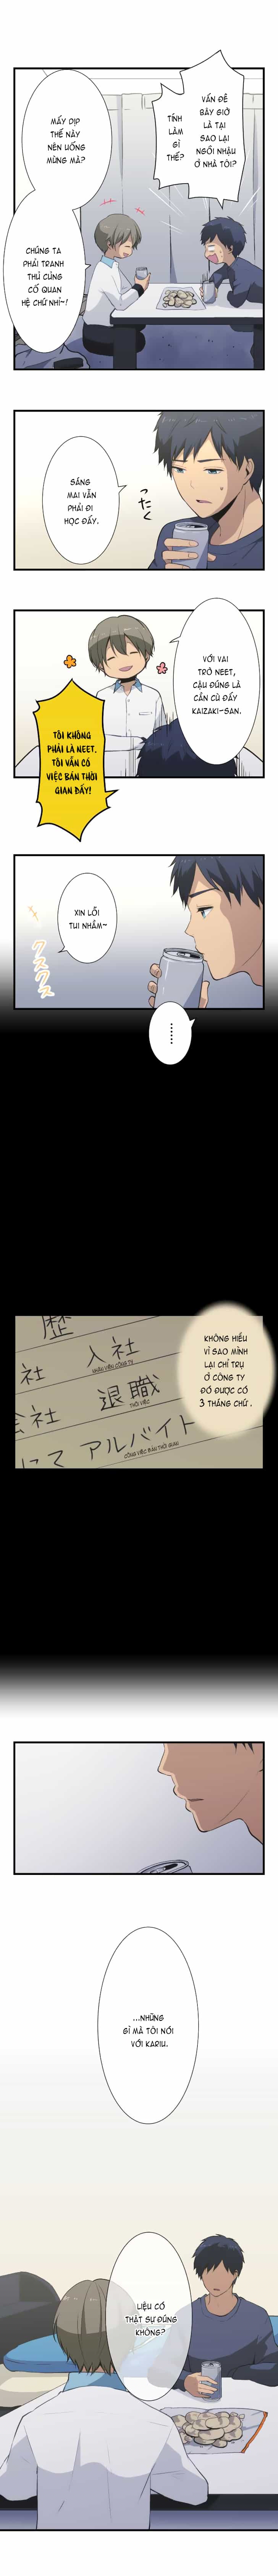 VẤN ĐỀ
BÂY GIỜ
LÀ TẠI
SAO LẠI
NGỒI NHẬU
Ở NHÀ TÔI?
TÍNH
LÀM
GÌ
THẾ?
MẤY DỊP
THẾ NÀY
NÊN UỐNG
MỪNG MÀ?
CHÚNG TA
PHẢI TRANH
THỦ CỦNG
CỐ QUAN
HỆ CHỨ NHỈ~!
SÁNG
MAI VẪN
PHẢI ĐI
HỌC ĐẤY.
ったく
VỚI VAI
TRÒ NEET,
CẬU ĐÚNG LÀ
CẦN CÙ ĐẤY
KAIZAKI-SAN.
TÔI KHÔNG
PHẢI LÀ NEET.
TÔI VẪN CÓ
VIỆC BÁN THỜI
GIAN ĐẤY!
XIN LỖI
TUI NHẦM~
クスクス
......
KHÔNG HIỂU
VÌ SAO MÌNH
LẠI CHỈ TRỤ
Ở CÔNG TY
ĐÓ ĐƯỢC CÓ
3 THÁNG CHỨ.
歴
社 入社
NHÂN VIÊN CÔNG TY
会社 退職
THÔI VIỆC
にて アルバイト
CÔNG VIỆC BÁN THỜI GIAN
...NHỮNG
GÌ MÀ TÔI NÓI
VỚI KARIU.
LIỆU CÓ
THẬT SỰ ĐÚNG
KHÔNG?